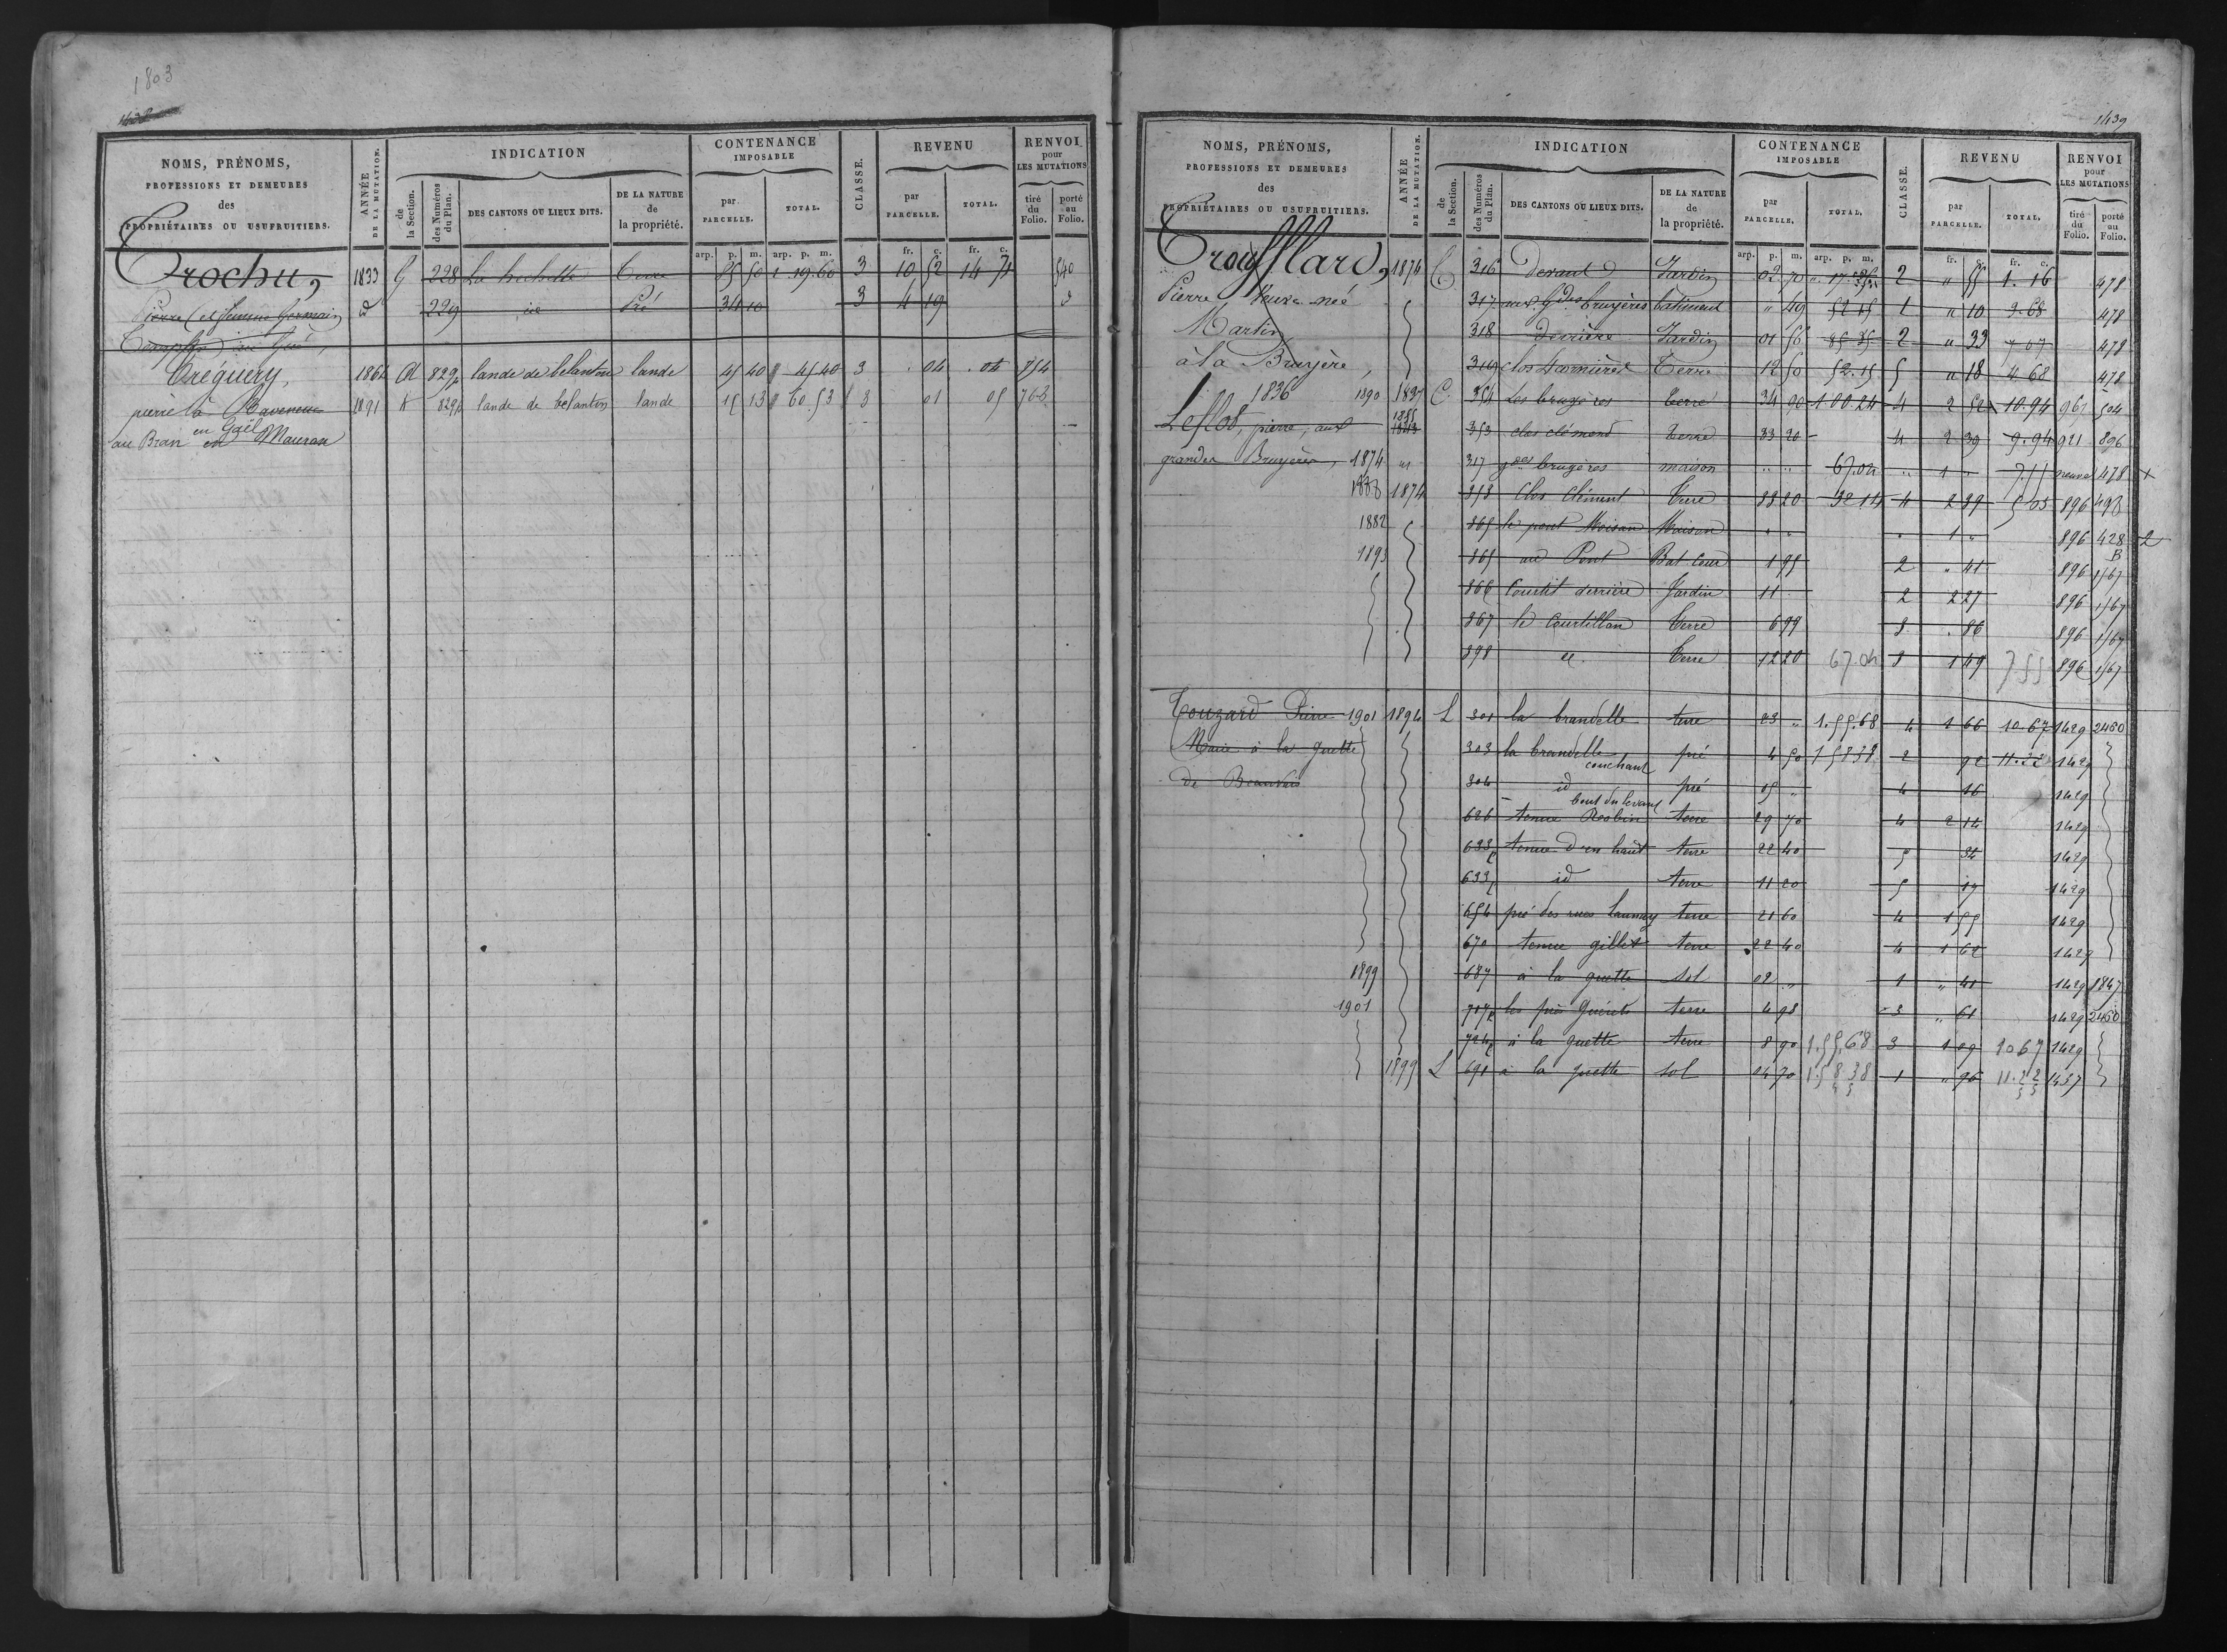 1803
1438
NOMS, PRÉNOMS, PROFESSIONS ET DEMEURES des PROPRIÉTAIRES OU USUFRUITIERS.
ANNÉE DE LA MUTATION.
INDICATION
de la Section.
des Numéros du Plan.
DES CANTONS OU LIEUX DITS.
DE LA NATURE de la propriété.
CONTENANCE IMPOSABLE
par PARCELLE.
TOTAL.
CLASSE.
REVENU
par PARCELLE.
TOTAL.
RENVOI pour LES MUTATIONS
tiré du Folio.
porté au Folio.
arp. p. m. arp. p. m. fr. c. fr. c.
Trochu, 1833 G 228 La huchette Terre 85 50 1.19.60 3 10 52 14 71 540
Pierre (et femme Germain) d 229 id Pré 34 10 3 4 19 d
Treguery, 1864 A 829 lande de belanton lande 45 40 45 40 3 04 04 854
pierre à 1891 K 829 lande de belanton lande 15 13 60.53 3 01 05 763
en Gaël
au Bran en Mauron
1439
NOMS, PRÉNOMS, PROFESSIONS ET DEMEURES des PROPRIÉTAIRES OU USUFRUITIERS.
ANNÉE DE LA MUTATION.
INDICATION
de la Section.
des Numéros du Plan.
DES CANTONS OU LIEUX DITS.
DE LA NATURE de la propriété.
CONTENANCE IMPOSABLE
par PARCELLE.
TOTAL.
CLASSE.
REVENU
par PARCELLE.
TOTAL.
RENVOI pour LES MUTATIONS
tiré du Folio.
porté au Folio.
arp. p. m. arp. p. m. fr. c. fr. c.
Troufflard, 1874 C 316 Devant Jardin 02 70 2 " 55 1.16 478
Pierre, Veuve née 317 aux Gdes bruyères batiment " 49 52 15 1 " 10 9.68 478
Martin 318 Derrière Jardin 01 56 85 35 2 " 33 7 07 478
à la Bruyère, 319 clos Cormières Terre 12 50 52.15 5 " 18 4 68 478
1836 1890 1837 C 354 Les bruyères terre 34 90 1 00.24 4 2 52 10.94 961 504
Leflot, pierre, aux 1855 1843 353 clos clémend terre 33 20 4 2 39 9.94 921 896
grandes Bruyères, 1874 317 gdes brugères maison " " 67.04 " 1 " 7.55 neuve 478 +
1888 1874 353 Clos Clément Terre 33 20 32 14 4 2 39 5 05 896 493
1882 865 le pont Moisan Maison " " " 1 " 896 428 2
1893 865 au Pont Bat Cour 1 95 2 " 41 896 B 1567
866 Courtil derrière Jardin 11 2 2 27 896 1567
867 le Courtillon Terre 6 99 3 " 86 896 1567
898 id. Terre 12 20 67.04 3 1 49 7 55 896 1567
Touzard Pierre 1901 1894 L 301 la brandelle terre 23 " 1.55.68 4 1 66 10.67 1429 2460
Marie à la guette 303 la brandelle couchant pré 4 50 1 58 38 2 92 11.22 1429
de Beauvais 304 id bout du levant pré 05 " 4 16 1429
626 tenue Resbin terre 29 70 4 2 14 1429
633 tenue d'en haut terre 22 40 5 34 1429
633 id terre 11 20 5 17 1429
654 pré des rues Launay terre 21 60 4 1 55 1429
670 tenue gillet terre 22 40 4 1 62 1429
1899 687 à la guette sol 02 " 1 " 41 1429 1847
1901 717 les prés Guérets terre 4 98 3 " 61 1429 2460
724 à la guette terre 8 90 1.55.68 3 1 09 10 67 1429
1899 L 691 à la guette sol 04 70 1.58 38 1 " 96 11.22 1437